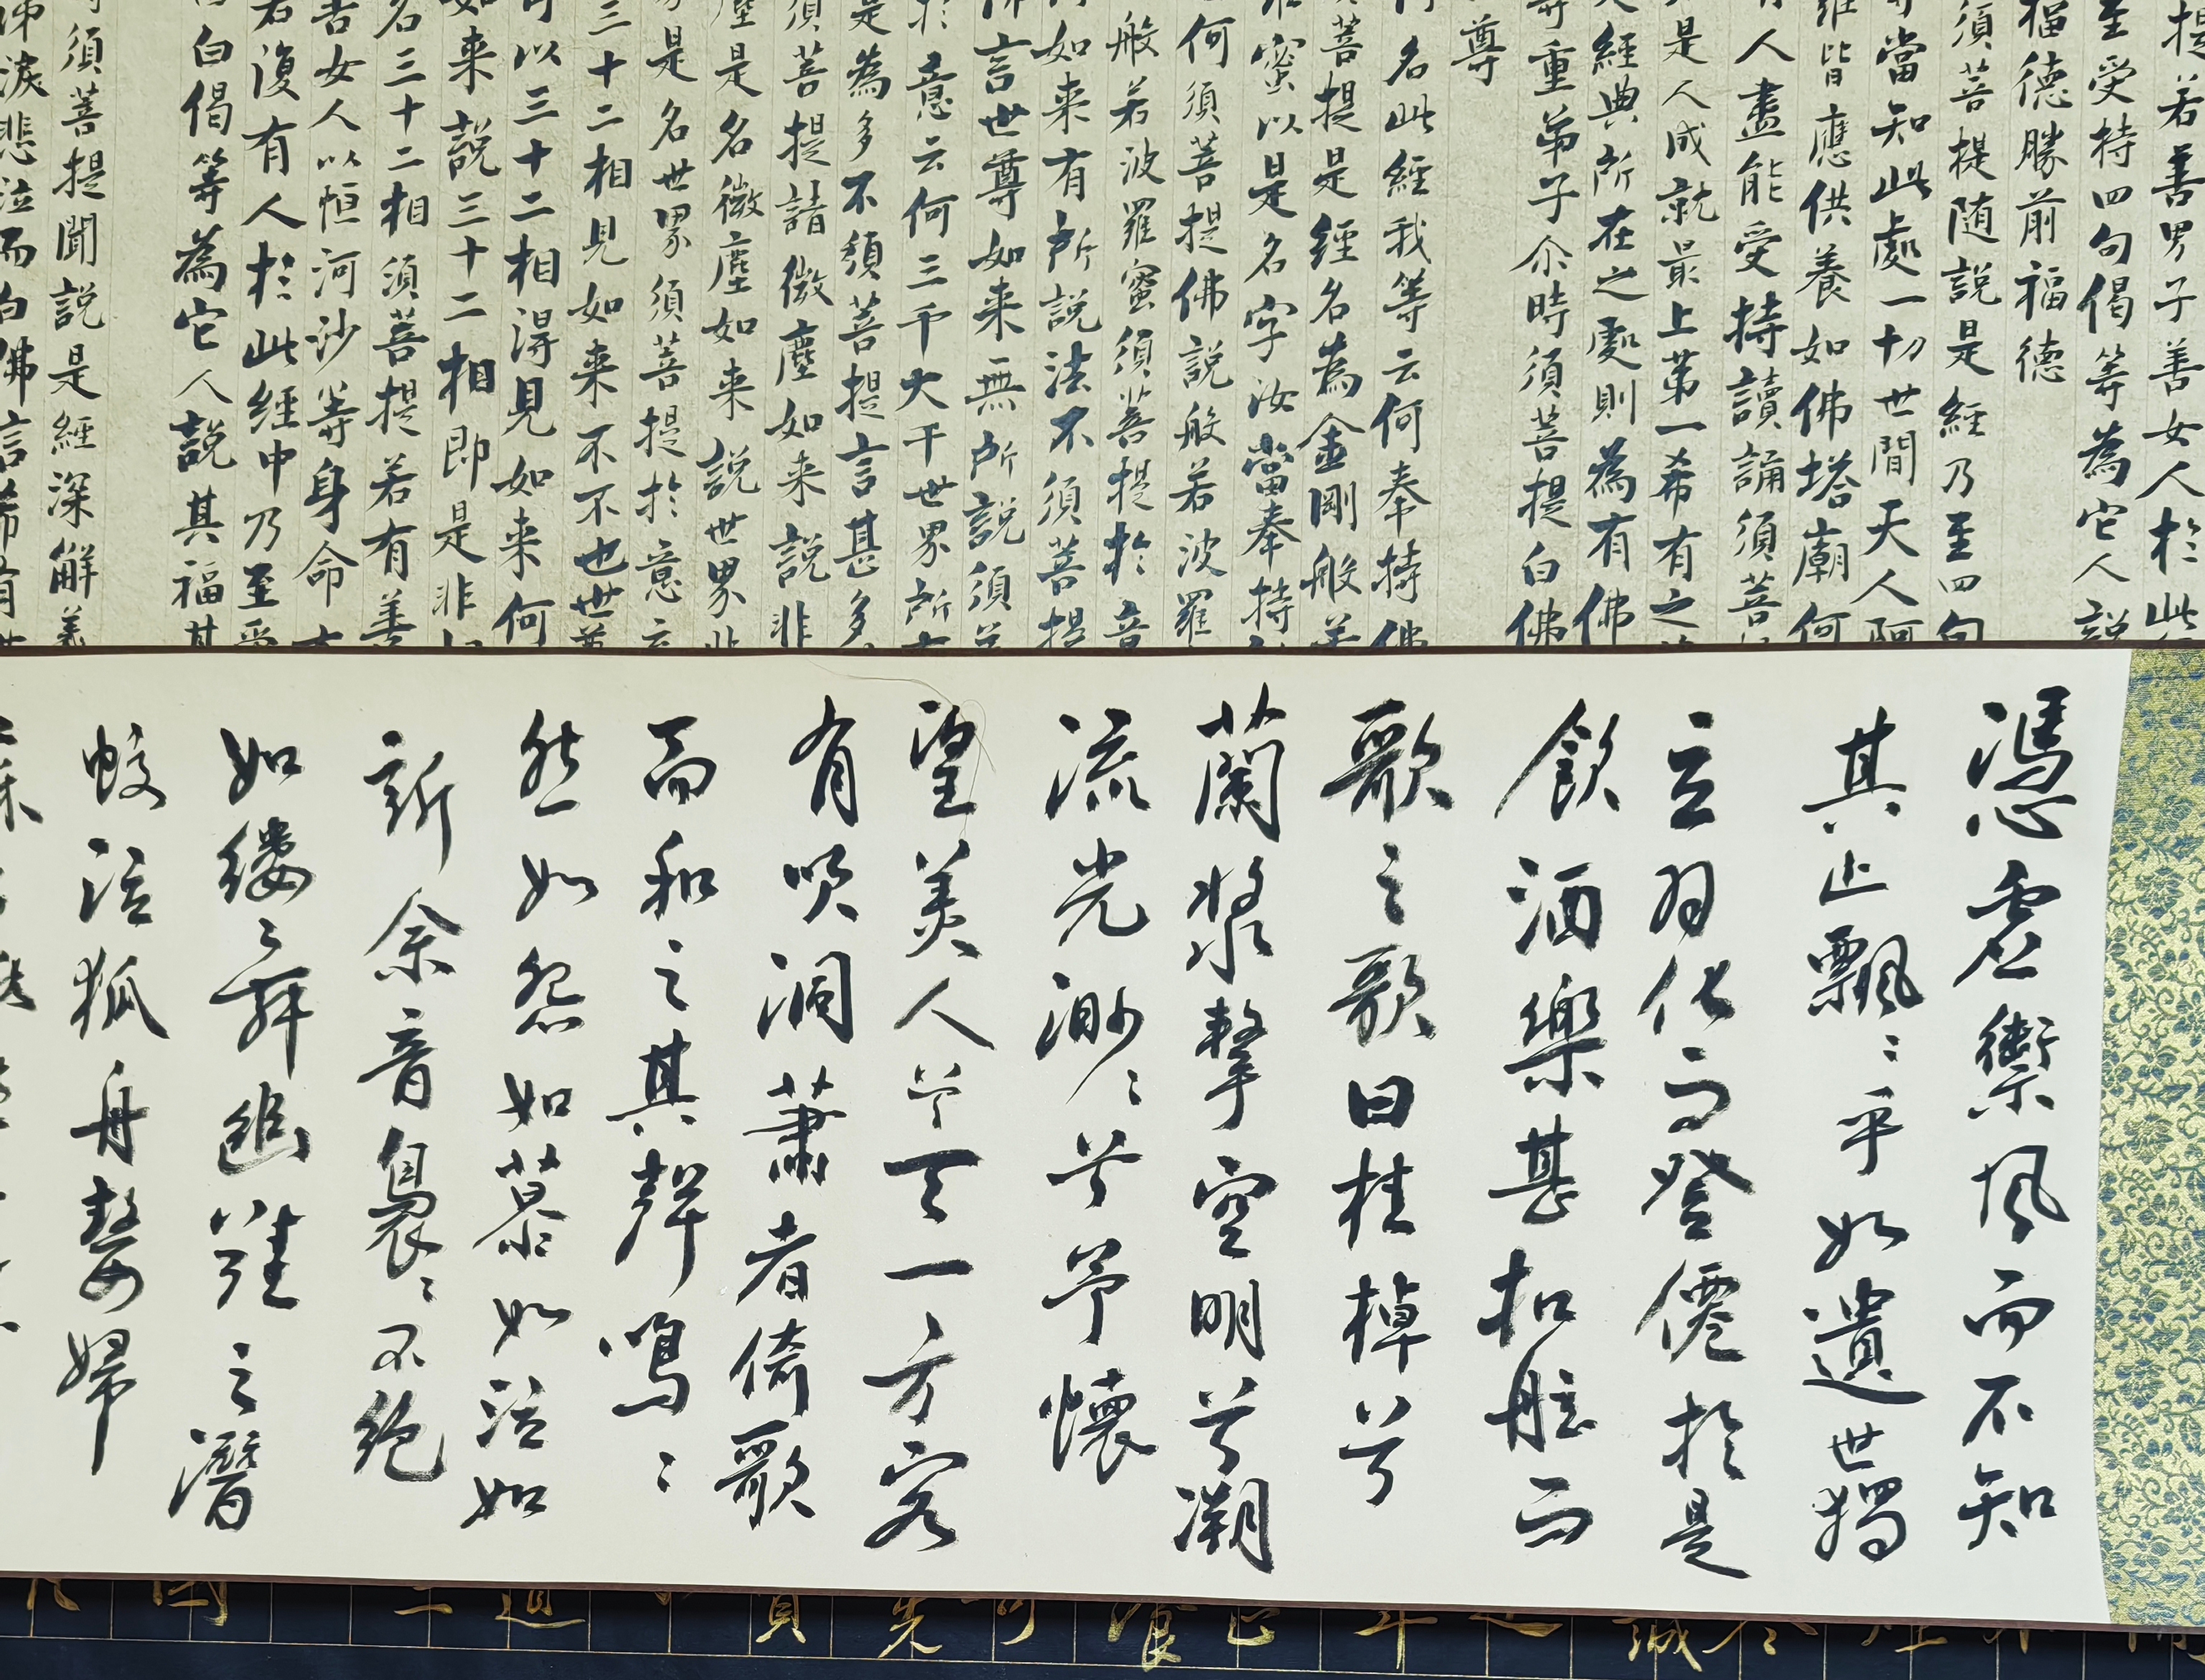 提若善男子善女人於此
至受持四句偈等為它人説
福德勝前福德
須菩提随説是經乃至四句
當知此處一切世間天人阿
羅皆應供養如佛塔廟何
人盡能受持讀誦須菩
是人成就最上第一希有之
經典所在之處則為有佛
重弟子尒時須菩提白佛
尊
名此經我等云何奉持佛
菩提是經名為金剛般若
蜜以是名字汝當奉持
何須菩提佛説般若波羅
般若波羅蜜須菩提於意
如来有所説法不須菩提
言世尊如来無所説須菩
於意云何三千大千世界所
是為多不須菩提言甚多
須菩提諸微塵如来説非
塵是名微塵如来説世界非
是名世界須菩提於意云
三十二相見如来不不也世尊
可以三十二相得見如来何
如来説三十二相即是非
名三十二相須菩提若有善
女人以恒河沙等身命布
若復有人於此經中乃至受
句偈等為它人説其福甚
須菩提聞説是經深解義
涕淚悲泣而白佛言希有世
馮虛御風而不知
其止飄飄乎如遺世獨
立羽化而登僊於是
飲酒樂甚扣舷而
歌之歌曰桂棹兮
蘭漿擊空明兮溯
流光渺渺兮予懷
望美人兮天一方客
有吹洞簫者倚歌
而和之其聲鳴鳴
然如怨如慕如泣如
訴余音裊裊不絕
如縷縷舞幽壑之潛
蛟泣孤舟嫠婦